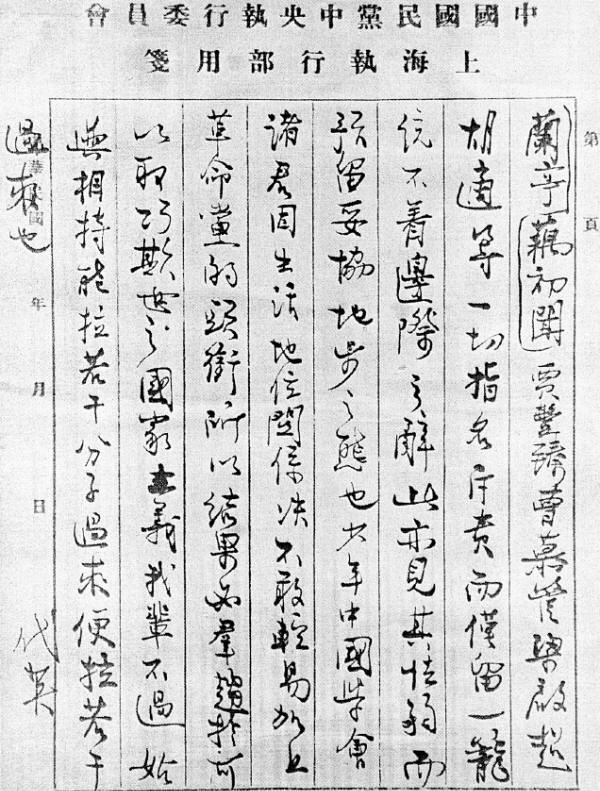 中國國民黨中央執行委員會
上海執行部用箋
第 頁
蘭亭藕初賈豐臻曹慕管梁啟超
胡適等一切指名斥責而僅留一籠
統不着邊際之辭此亦見其怯弱而
預留妥協地步之態也少年中國學會
諸君因生活地位關係決不敢輕易加上
革命黨的頭銜所以結果必羣趨於可
以取巧欺世之國家主義我輩不過始
與相持能拉若干分子過來便拉若干
過來也
代英
華民國 年 月 日